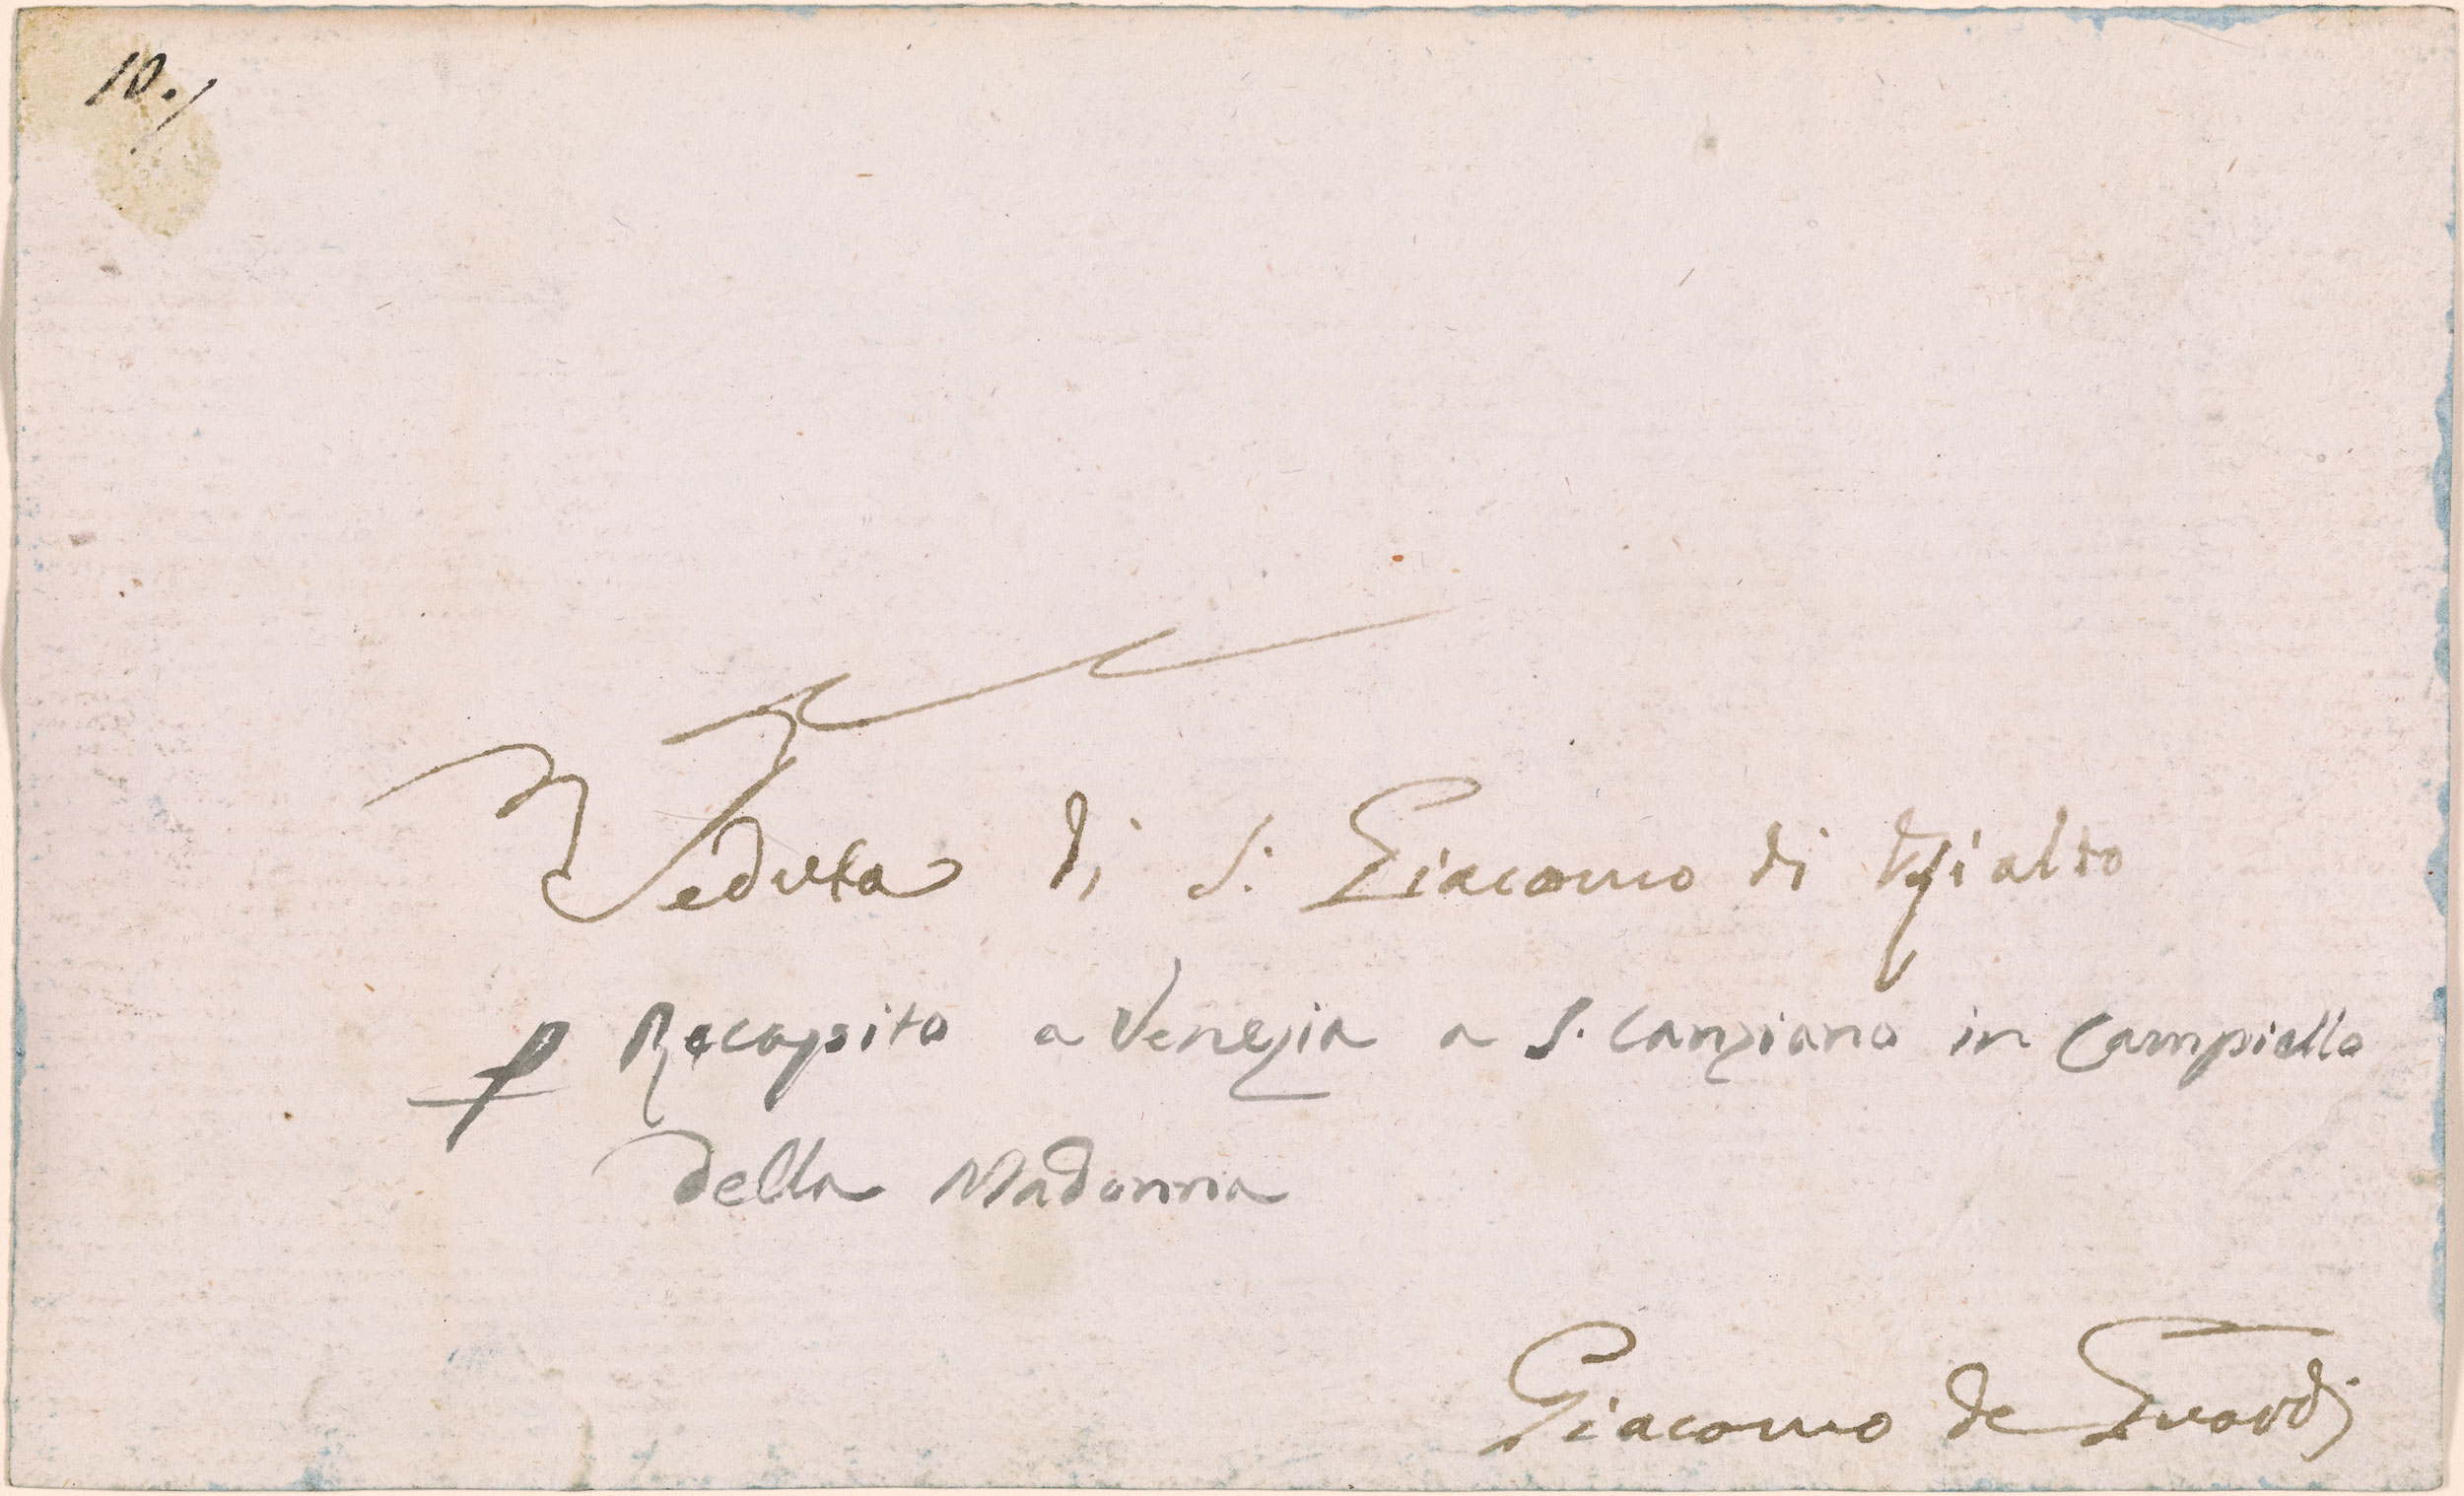 10./
Veduta di S: Giacomo di Rialto
P Recapito a Venezia a S. Canziano in Campiello
della Madonna
Giacomo de Guardi